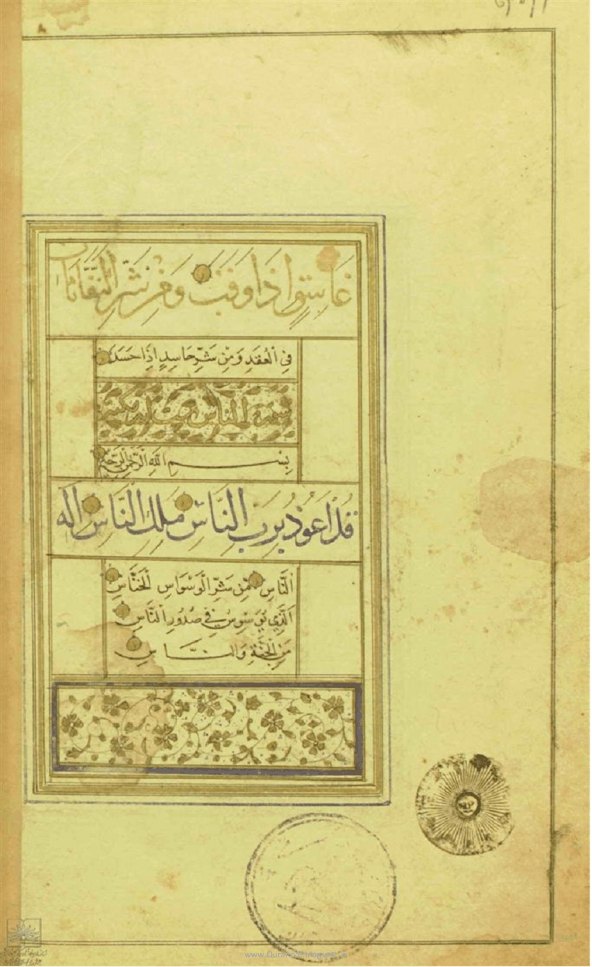 غَاسِقٍ اِذَا وَقَبَ وَمِنْ شَرِّ النَّفَّاثَاتِ
فِي الْعُقَدِ وَمِنْ شَرِّ حَاسِدٍ اِذَا حَسَدَ
بِسْمِ اللهِ الرَّحْمٰنِ الرَّحِيْمِ
قُلْ اَعُوذُ بِرَبِّ النَّاسِ مَلِكِ النَّاسِ اِلٰهِ
النَّاسِ مِنْ شَرِّ الْوَسْوَاسِ الْخَنَّاسِ
الَّذِي يُوَسْوِسُ فِي صُدُورِ النَّاسِ
مِنَ الْجِنَّةِ وَالنَّاسِ